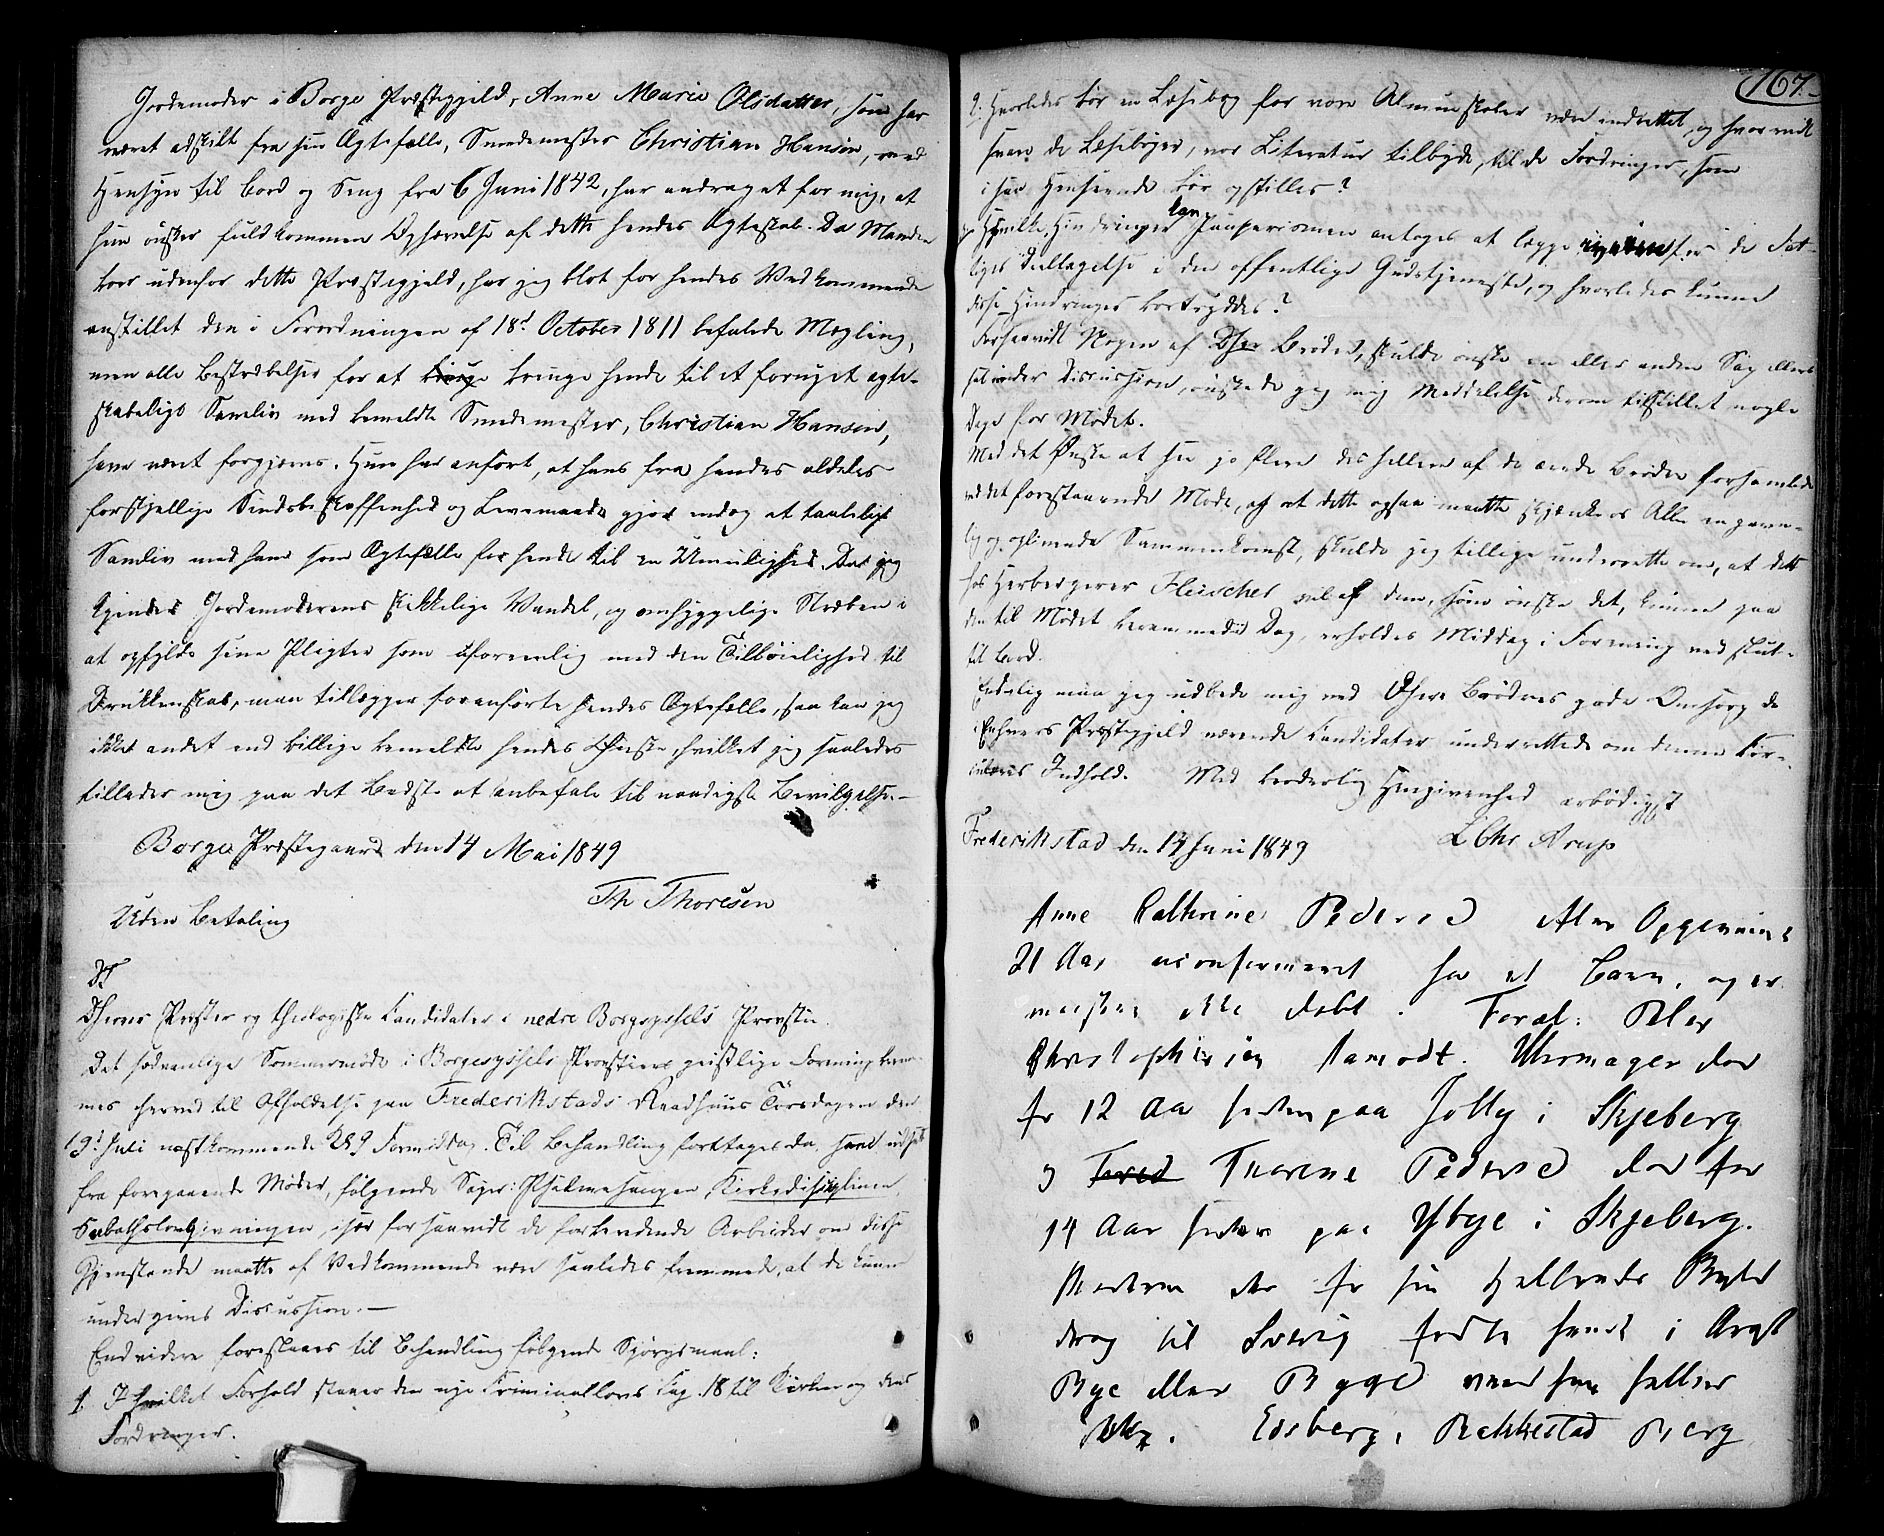 Jordemoder i Borge Præstegjeld, Anne Marie Olsdatter, som har
været adskilt fra sin Ægtefælle, Smedemester Christian Hansen, med
Hensyn til Bord og Seng fra 6 Juni 1842, har andraget for mig, at
hun ønsker fuldkommen Ophævelse af dette hendes Ægteskab. Da Manden
boer udenfor dette Præstegjeld, har jeg blot for hendes Vedkommende
anstillet den i Forordningen af 18d October 1811 befalede Mægling,
men alle Bestræbelser for at bringe bringe hende til et fornyet ægte-
skabeligt Samliv med bemeldte Smedemester, Christian Hansen,
have været forgjæves. Hun har anført, at hans fra hendes aldeles
forskjellige Sindsbeskaffenhed og Levemaade gjør endog et taaleligt
Samliv med ham som Ægtefælle for hende til en Umulighed. Da jeg
kjender Jordemoderens skikkelige Vandel, og omhyggelige Stræben i
at opfylde sine Pligter som uforenelig med den Tilbøielighed til
Drukkenskab, man tillægger foranførte hendes Ægtefælle, saa kan jeg
ikke andet end billige bemeldte hendes Ønske, hvilket jeg saaledes
tillader mig paa det Bedste at anbefale til naadigste Bevilgelse.—
Borge Præstegaard den 14 Mai 1849
Th Thoresen
Uden Betaling
DT
Dherrer Præster og theologiske Candidater i nedre Borgesyssels Provstie.
Det sædvanlige Sommermøde i Borgesyssels Provstiers geistlige Forening kom-
mes herved til Afholdelse paa Frederikstads Raadhuus Torsdagen den
19d Juli næstkommende Kl 9 Formiddag. Til Behandling foretages da, samt udsat
fra foregaaende Møder, følgende Sager: Psalmesangen, Kirkedisciplinen,
Sabathslovgivningen, især forsaavidt de forberedende Arbeider om disse
Gjenstande maatte af Vedkommende være saaledes fremmede, at de kunne
undergives Discussion.—
Endvidere foreslaaes til Behandling følgende Spørgsmaal:
1. I hvilket Forhold staaer den nye Criminallovs Cap. 18 til Kirken og dens
Fordringer.
167.
2. Hvorledes bør en Læsebog for vore Almueskoler være indrettet, og hvorvidt
svare de Læsebøger, vor Literatur tilbyde, til de Fordringer, som
i saa Henseende bør opstilles?
3. Hvilke Hindringer kan Pauperismen antages at lægge for de Fat-
tiges Deeltagelse i den offentlige Gudstjeneste, og hvorledes kunne
disse Hindringer bortryddes?
Forsaavidt Nogen af Dhrr Brødre, skulde ønske en eller anden Sag ellers
sat under Discussion, ønskede jeg mig Meddelelse derom tilstillet nogle
Dage før Mødet.
Med det Ønske at see jo flere des hellere af de ærede Brødre forsamlede
ved det forestaaende Møde, og at dette ogsaa maatte skjænke os Alle en gavn-
lig og oplivende Sammenkomst, skulde jeg tillige underrette om, at dett
hos Herbergerer Fleischer vil af dem, som ønske det, kunne paa
den til Mødet berammede Dag, erholdes Middag i Forening ved slut-
tet Bord.
Endelig maa jeg udbede mig ved Dherr Brødres gode Omsorg de
i Enhvers Præstegjeld værende Candidater underrettede om denne Cir-
culaires Indhold. Med broderlig Hengivenhed ærbødigst
Frederikstad den 14 Juni 1849 L Chr Arup
Anne Kathrine Pedersd
21 Aar uconfirmeret har et Barn, og er
maaskee ikke døbt. Foræl: Peder
Christophersen Uhrmager dør
for 12 Aar siden paa Jolly i Skjeberg
og Fred Thorene Pedersd dør for
14 Aar siden paa Ysbye i Skjeberg.
drog til Sverig fødte hende i
Bye eller Bygd
Edsberg, Rakkestad Berg